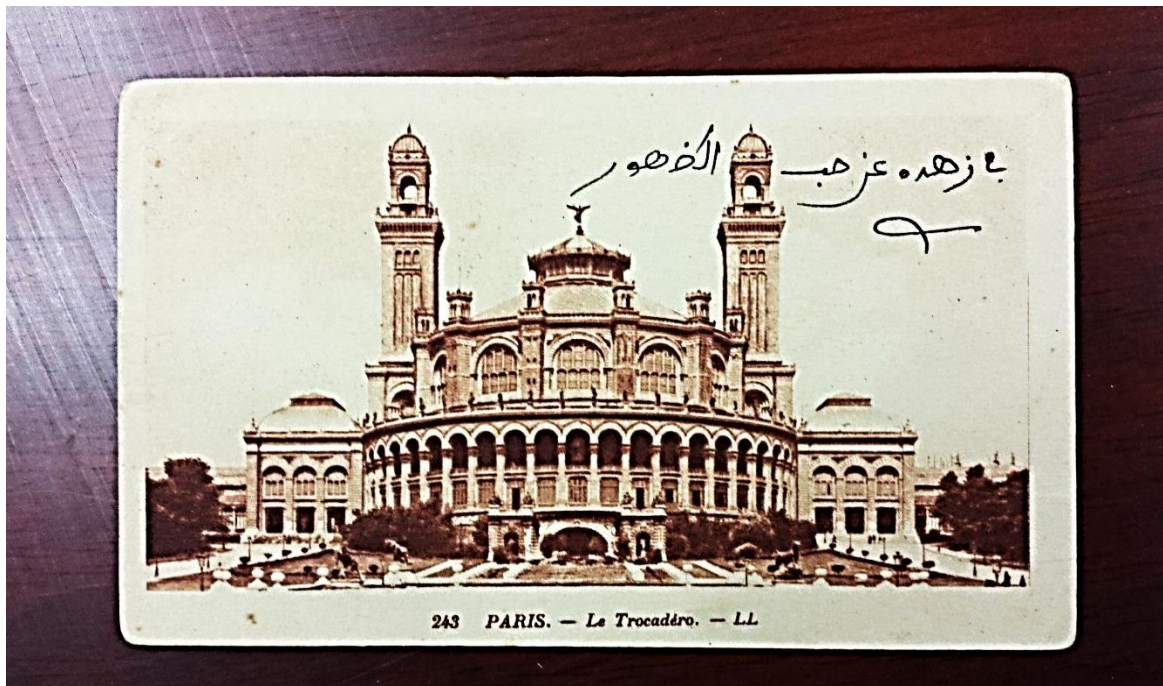 زهده عن حب الظهور
243 PARIS. — Le Trocadéro. — LL